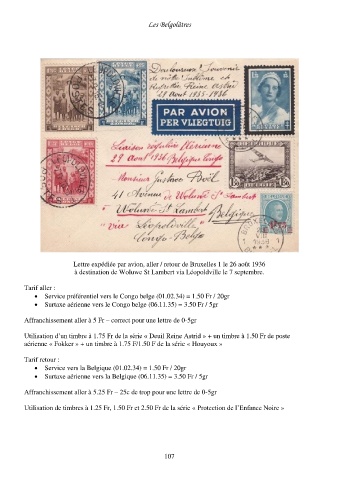 Les Belgolâtres
Douloureux Souvenir
de notre
et
Reine Astrid
29 Août 1935-1936
PAR AVION
PER VLIEGTUIG
Liaison régulière Aérienne
29 Août 1936 Belgique Congo
Monsieur Gustave
41 Avenue de Woluwé St Lambert
à Woluwé St Lambert
Belgique
"via" Léopoldville
Congo-Belge
Lettre expédiée par avion, aller / retour de Bruxelles 1 le 26 août 1936
à destination de Woluwe St Lambert via Léopoldville le 7 septembre.
Tarif aller :
• Service préférentiel vers le Congo belge (01.02.34) = 1.50 Fr / 20gr
• Surtaxe aérienne vers le Congo belge (06.11.35) = 3.50 Fr / 5gr
Affranchissement aller à 5 Fr – correct pour une lettre de 0-5gr
Utilisation d’un timbre à 1.75 Fr de la série « Deuil Reine Astrid » + un timbre à 1.50 Fr de poste
aérienne « Fokker » + un timbre à 1.75 F/1.50 F de la série « Houyoux »
Tarif retour :
• Service vers la Belgique (01.02.34) = 1.50 Fr / 20gr
• Surtaxe aérienne vers la Belgique (06.11.35) = 3.50 Fr / 5gr
Affranchissement aller à 5.25 Fr – 25c de trop pour une lettre de 0-5gr
Utilisation de timbres à 1.25 Fr, 1.50 Fr et 2.50 Fr de la série « Protection de l’Enfance Noire »
107